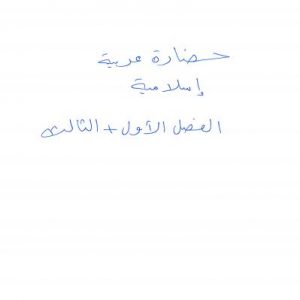 حضارة عربية
إسلامية
الفصل الأول + الثالث